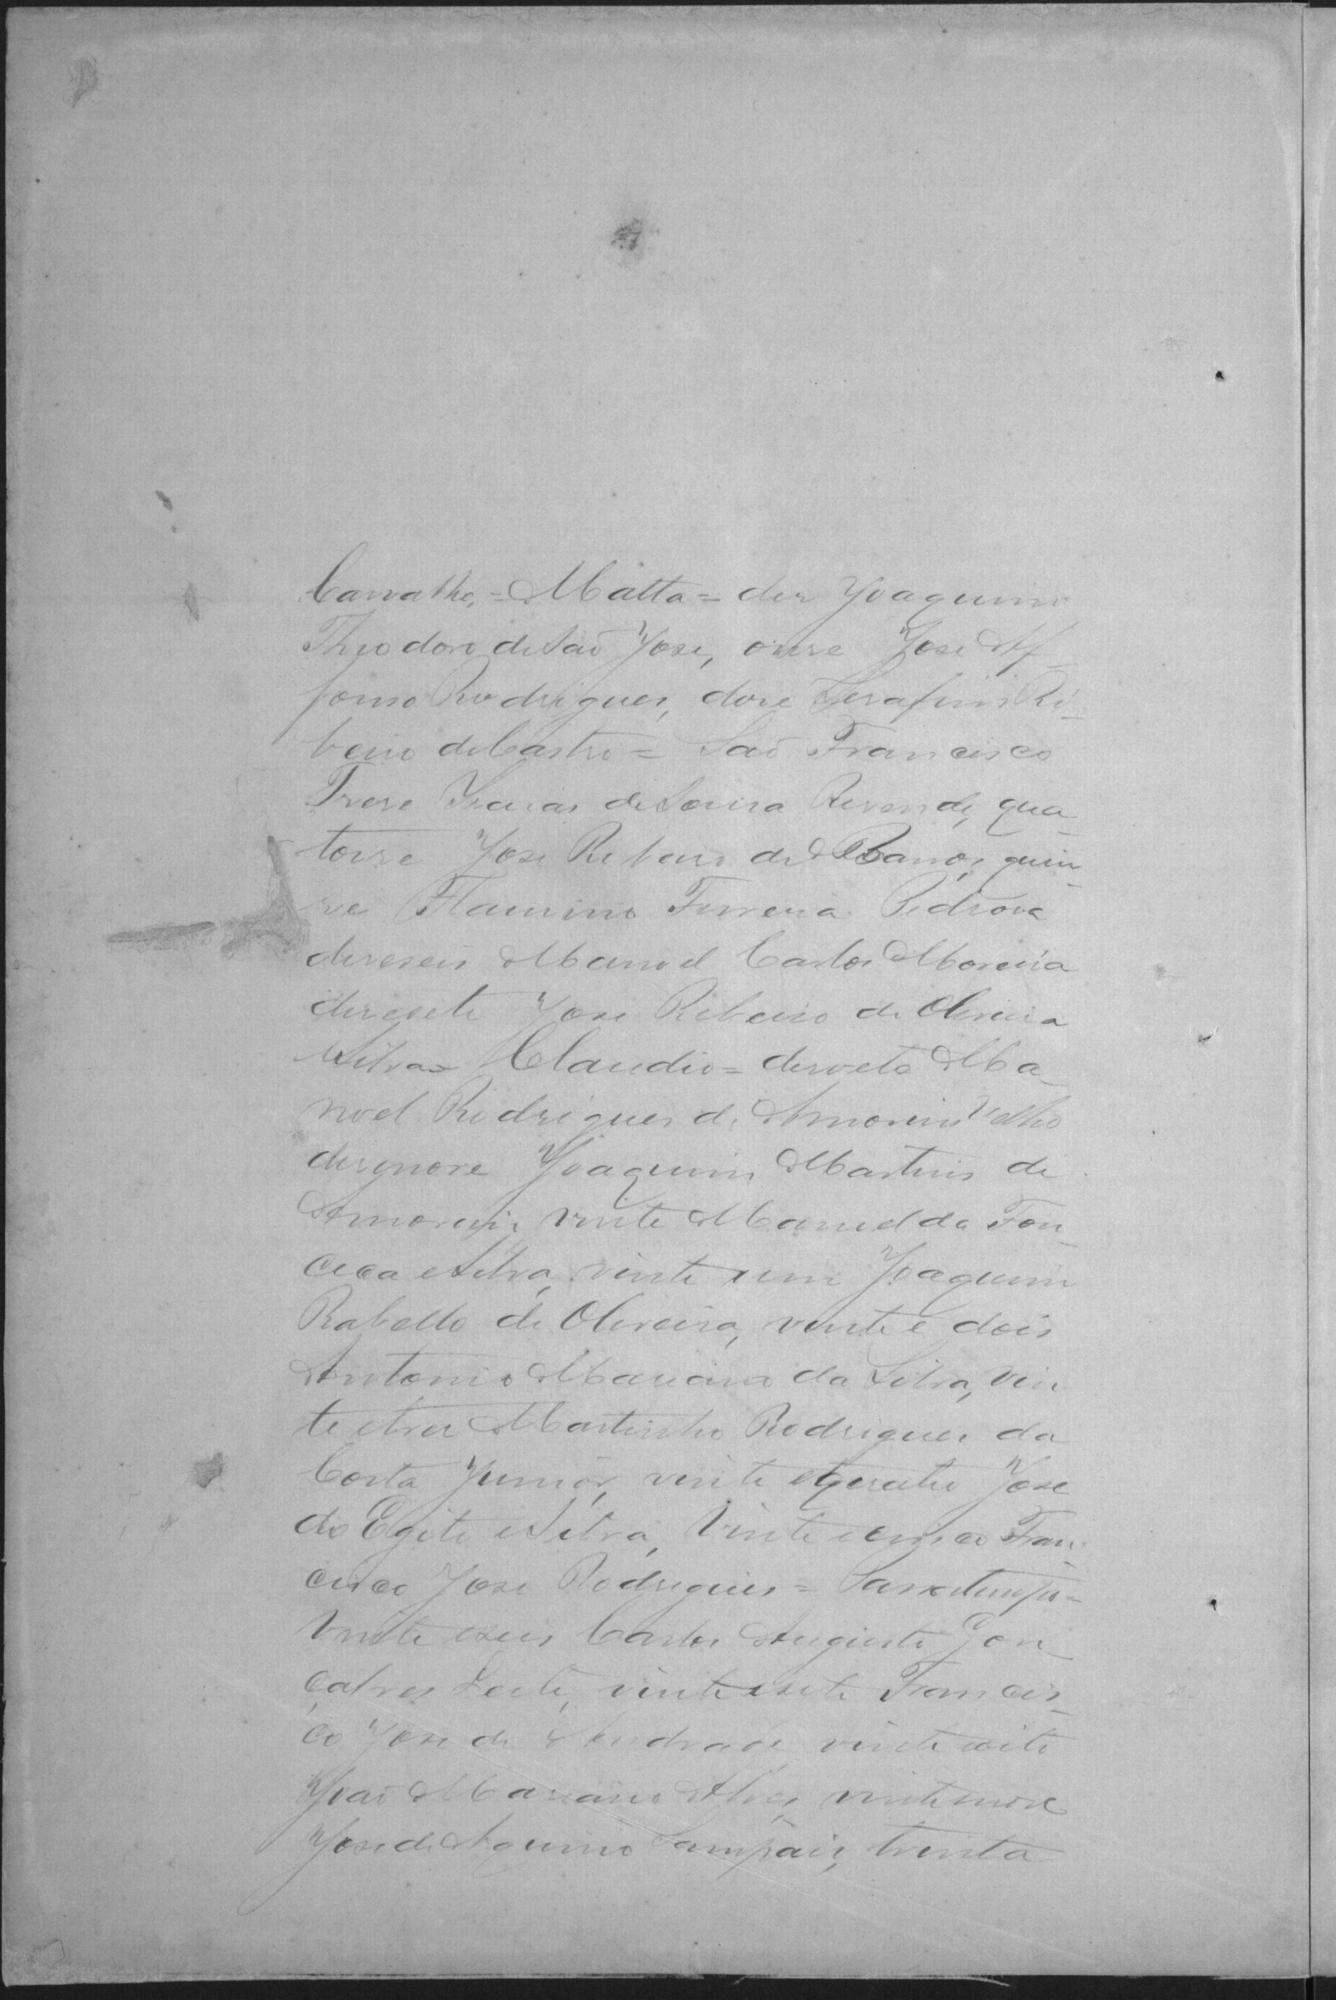 Carvalho, = Matta = dez Joaquim
Theodoro de São José, onze José Af-
fonso Rodrigues, doze Serafim Ri-
beiro de Castro = São Francisco
Treze Izaias de Souza Rezende, qua-
torze José Ribeiro de Barros, quin-
ze Flaurino Ferreira Pedroza
dezeseis Manoel Carlos Moreira
dezesete José Ribeiro de Oliveira
e Silva = Claudio = dezoito Ma-
noel Rodrigues de Amorim Velho
dezenove Joaquim Martins de
Amorim, vinte Manoel da Fon-
ceca e Silva, vinte e um Joaquim
Rabello de Oliveira, vinte e dois
Antonio Marianno da Silva, vin
te e tres Martinho Rodrigues da
Costa Junior, vinte e quatro José
do Egito e Silva, Vinte e cinco Fran-
cisco José Rodrigues =
Vinte e seis Carlos Augusto Gon-
çalves Leite, vinte e sete Francis-
co José de Andrade vinte e oito
João Marianno Alves, vinte nove
José de Aquino Sampaio, trinta